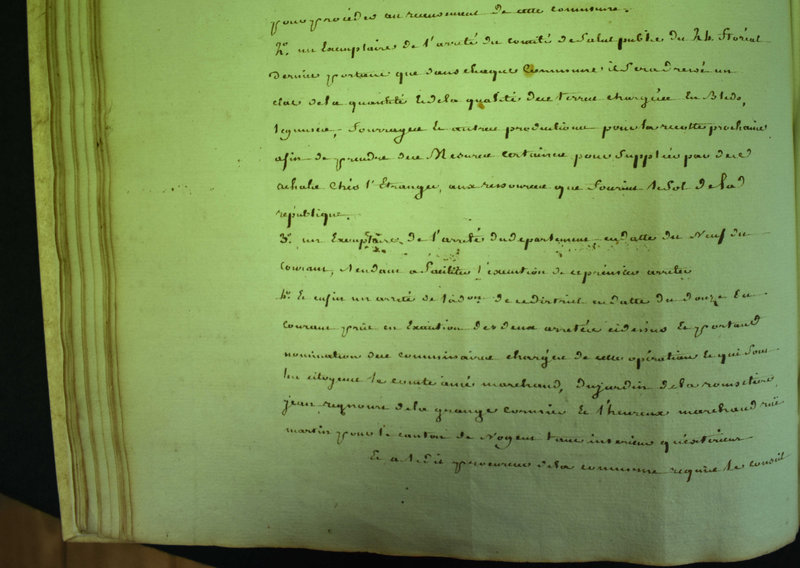 pour procéder au recensement de cette commune.
2.° un Exemplaire de l'arreté du comité de Salut public du 24 floréal
dernier portant que dans chaque Commune il sera dressé un
etat de la quantité et de la qualité des terres chargées en Bleds,
legumes, fourrages et autres productions pour la recolte prochaine
afin de prendre des Mesures certaines pour suppleer par des
achats chés l'Etranger, aux ressources que fournit le sol de la
republique.
3.° un Exemplaire de l'arreté du departement en datte du Neuf du
Courant, tendant a faciliter l'execution de ce premier arreté
4.° Et enfin un arreté de l'adon de ce district en datte du douze du
courant pris en Exécution des deux arretés cidessus Et portant
nomination des commissaires chargés de cette opération Et qui sont
les citoyens le comte ainé marchand, Dujardin de la
jean regnoust de la grange Et l'heureux marchand rue
martin pour le canton de Nogent tant interieur qu'extérieur
Et a ledit procureur de la commune requis le conseil